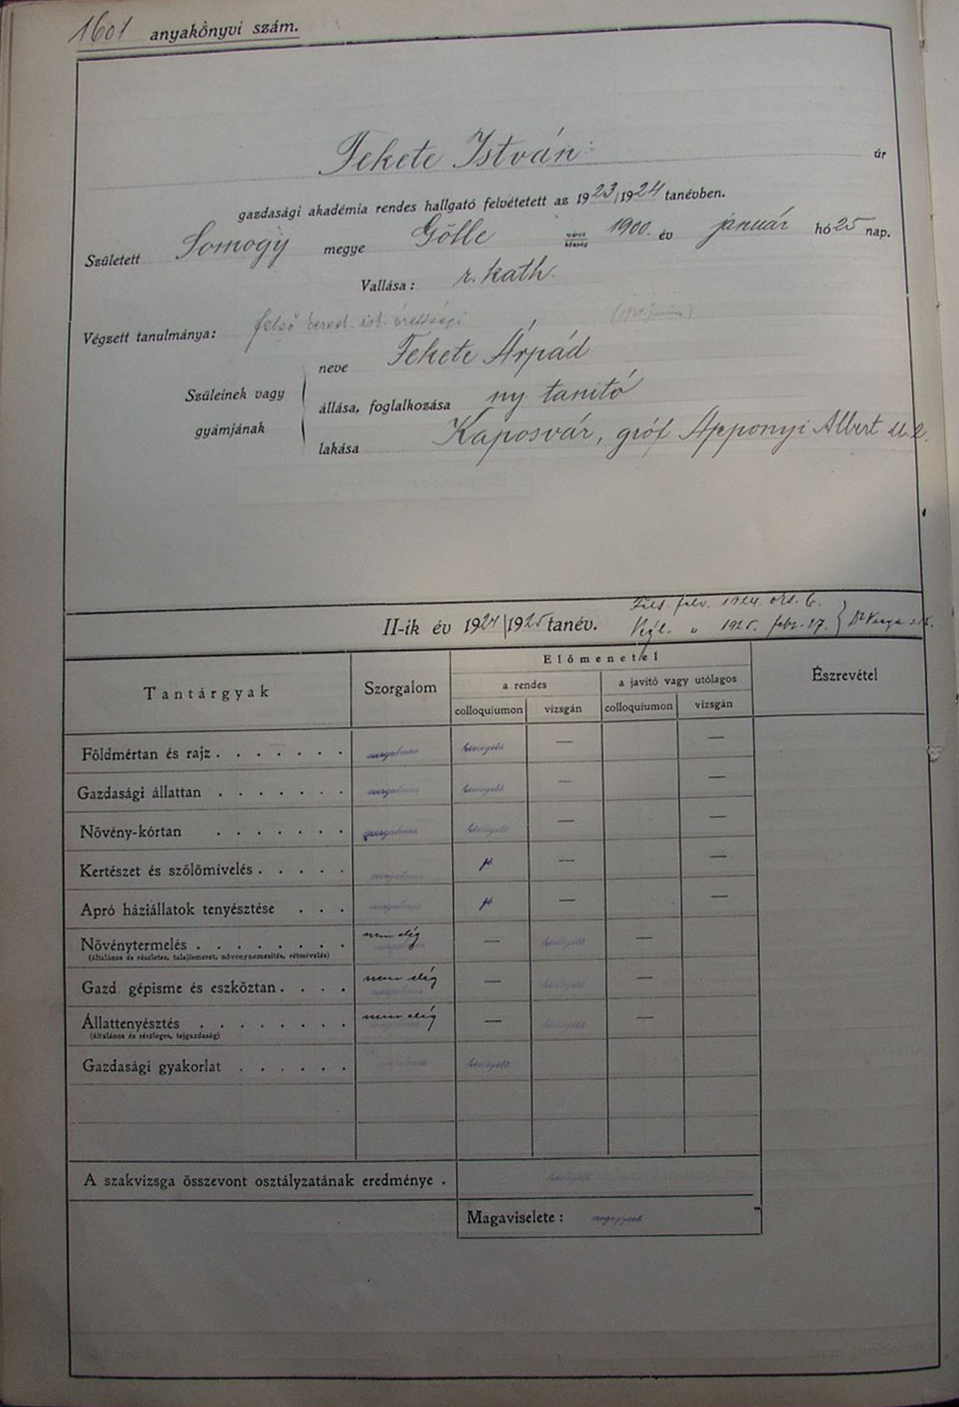 1601 anyakönyvi szám.
Fekete István úr
gazdasági akadémia rendes hallgató felvétetett az 1923/1924 tanévben.
Született Somogy megye Gölle város község 1900. év január hó 25 nap.
Vallása: r. kath.
Végzett tanulmánya: felső keresk. isk. érettségi
Szüleinek vagy gyámjának
neve Fekete Árpád
állása, foglalkozása ny. tanító
lakása Kaposvár, gróf Apponyi Albert u. 2.
II-ik év 1924/1925 tanév.
1924. okt. 6.
" 1925. febr. 17. Dr Varga
Tantárgyak Szorgalom Előmenetel Észrevétel
a rendes a javító vagy utólagos
colloquiumon vizsgán colloquiumon vizsgán
Földmértan és rajz . . . . . . . szorgalmas — —
Gazdasági állattan . . . . . . . szorgalmas — —
Növény-kórtan . . . . . . . szorgalmas — —
Kertészet és szőlőmívelés . . . . . szorgalmas jó — —
Apró háziállatok tenyésztése . . . szorgalmas jó — —
Növénytermelés . . . . . . . . nem elég — —
(általános és részletes, talajismeret, növénynemesítés, rétmívelés)
Gazd. gépisme és eszköztan . . . . nem elég — —
Állattenyésztés . . . . . . . . nem elég — —
(általános és részleges, tejgazdaság)
Gazdasági gyakorlat . . . . . .
A szakvizsga összevont osztályzatának eredménye .
Magaviselete :